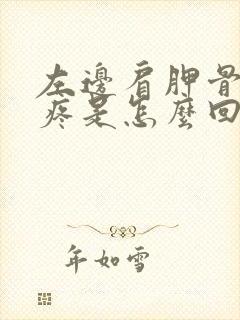 左邊肩胛骨
疼是怎麼回
年如雪